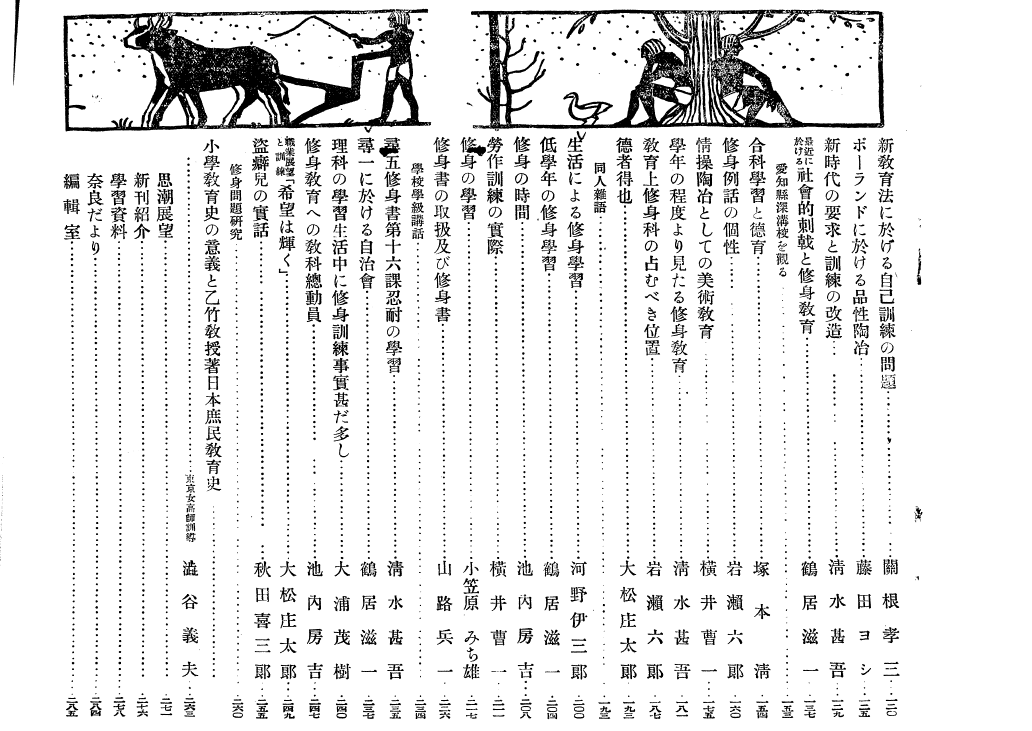 新教育法に於ける自己訓練の問題 關根孝三 一三〇
ポーランドに於ける品性陶冶 藤田ヨシ 一三五
新時代の要求と訓練の改造 淸水甚吾 一三九
最近に於ける社會的刺戟と修身教育 鶴居滋一 一三七
愛知縣深溝校を觀る 一五三
合科學習と德育 塚本淸 一五四
修身例話の個性 岩瀨六郎 一六〇
情操陶冶としての美術教育 橫井曹一 一七五
學年の程度より見たる修身教育 淸水甚吾 一八一
教育上修身科の占むべき位置 岩瀨六郎 一八七
德者得也 大松庄太郎 一九三
同人雜語 一九三
生活による修身學習 河野伊三郎 二〇〇
低學年の修身學習 鶴居滋一 二〇四
修身の時間 池內房吉 二〇八
勞作訓練の實際 橫井曹一 二一一
修身の學習 小笠原みち雄 二一七
修身書の取扱及び修身書 山路兵一 二二六
學校學級講話 二三四
尋五修身書第十六課忍耐の學習 淸水甚吾 二三五
尋一に於ける自治會 鶴居滋一 二三七
理科の學習生活中に修身訓練事實甚だ多し 大浦茂樹 二四〇
修身教育への教科總動員 池內房吉 二四七
職業展望と訓練「希望は輝く」 大松庄太郎 二四九
盜癖兒の實話 秋田喜三郎 二五五
修身問題硏究 二六〇
小學教育史の意義と乙竹教授著日本庶民教育史
東京女高師訓導 澁谷義夫 二六三
思潮展望 二七一
新刊紹介 二七六
學習資料 二七八
奈良だより 二八四
編輯室 二八五